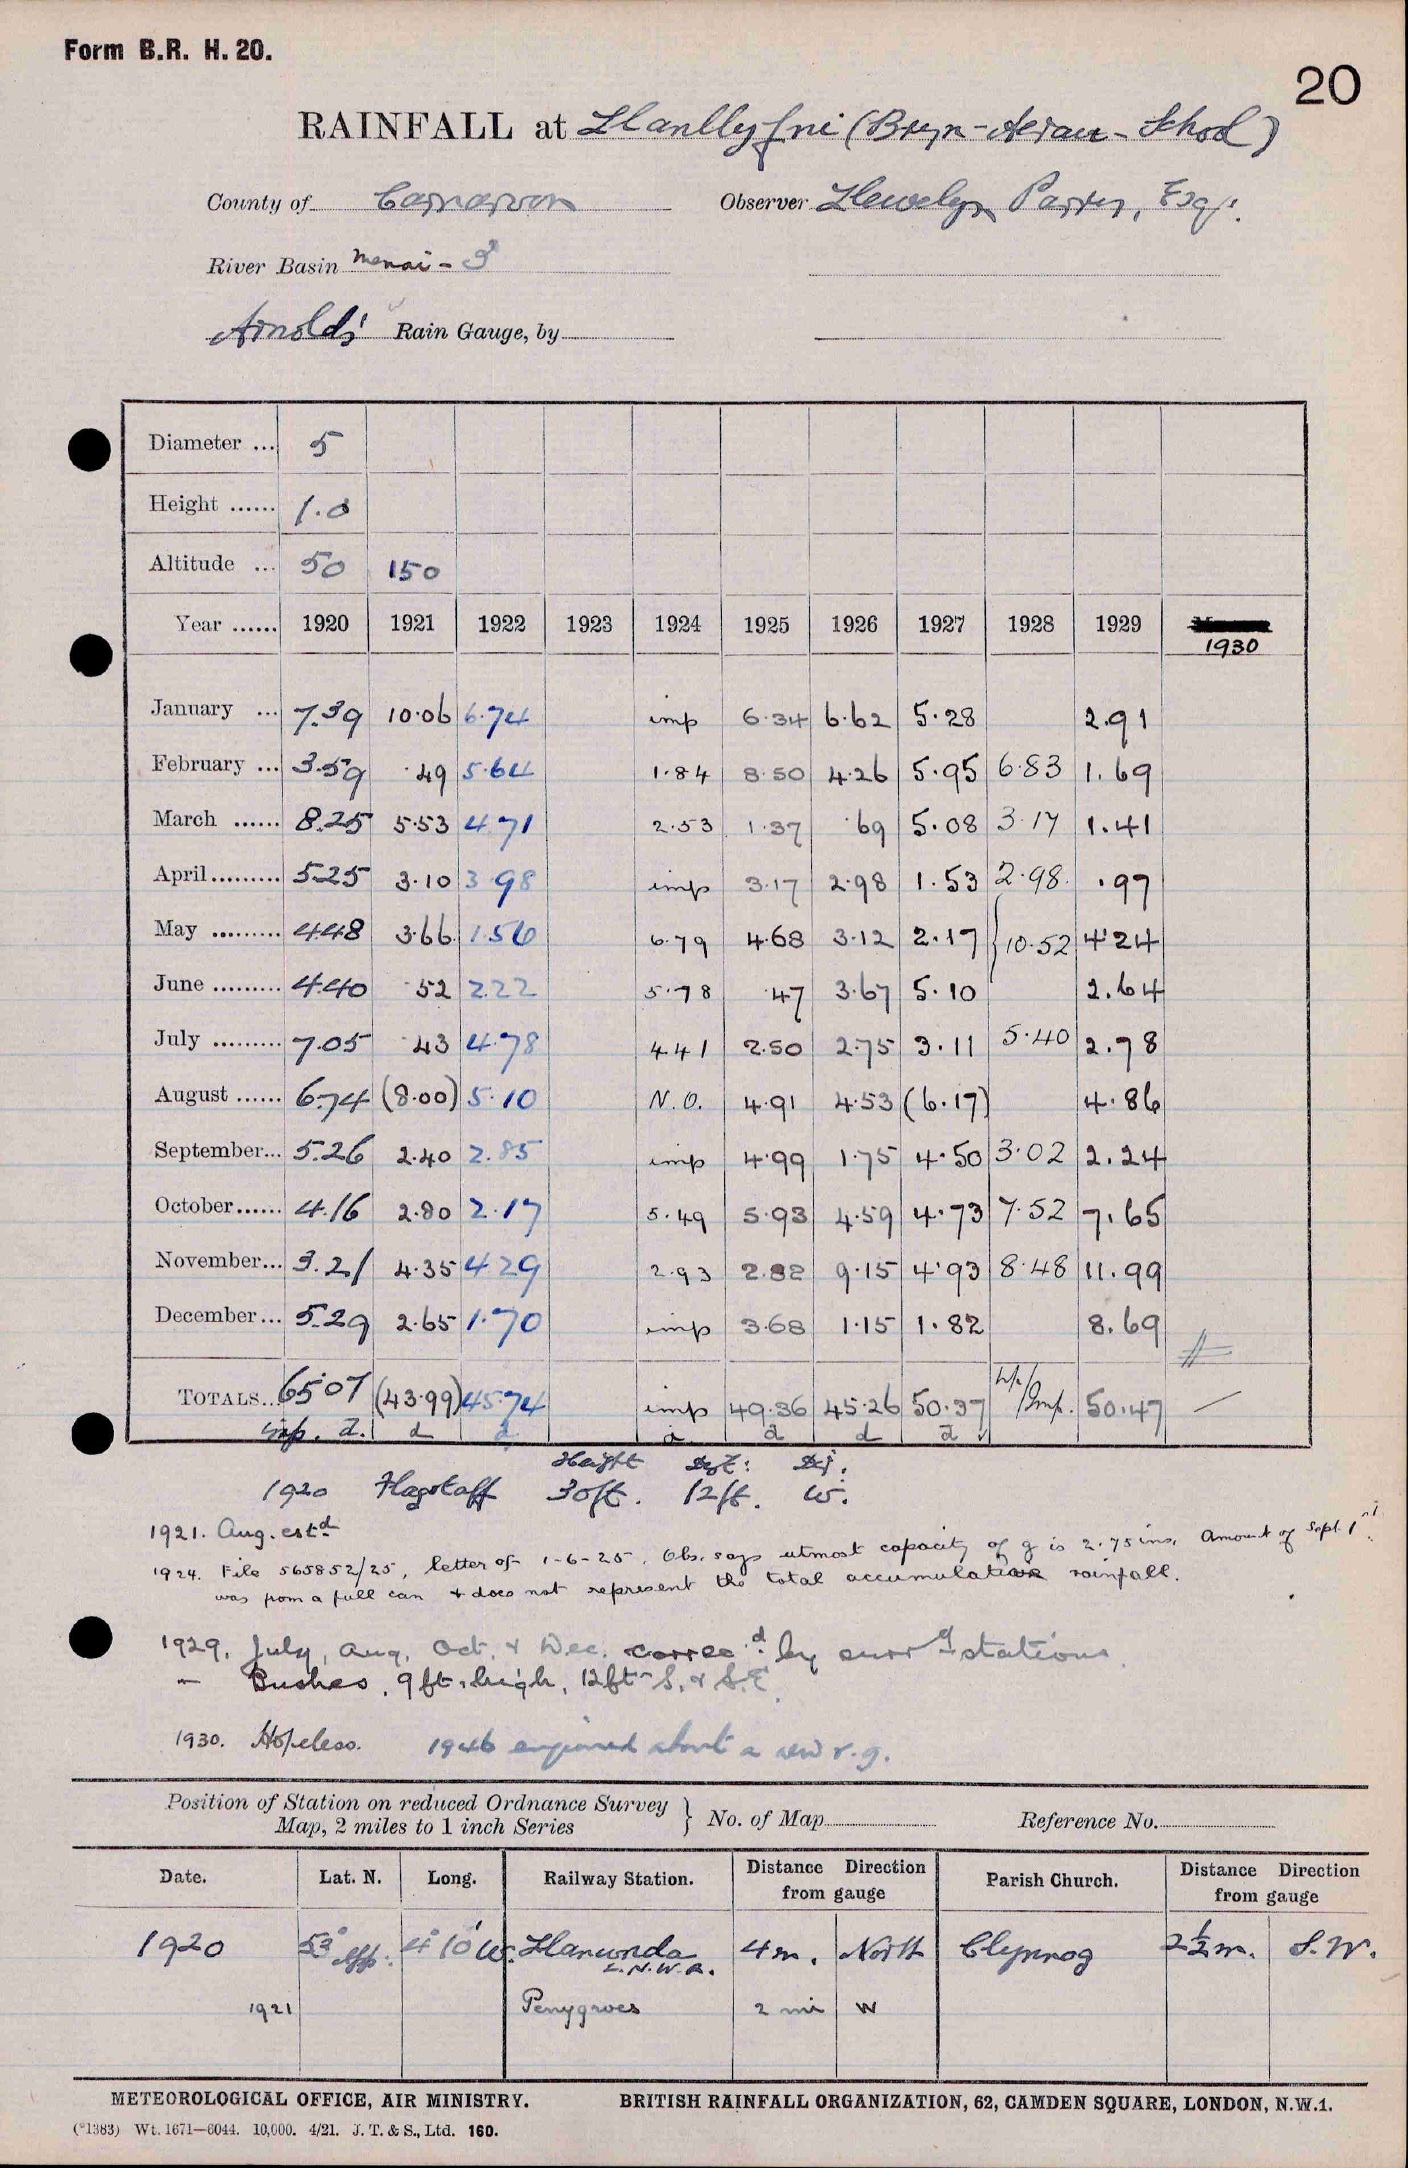 Form B.R. H. 20.
20
RAINFALL at Llanllyfni (Bryn-Aerau-School)
County of Carnarvon Observer Llewelyn Parry, Esq.
River Basin Menai - 3
Arnold's Rain Gauge, by
Diameter ... 5
Height ...... 1.0
Altitude ... 50 150
Year ...... 1920 1921 1922 1923 1924 1925 1926 1927 1928 1929 1930
January ... 7.39 10.06 6.74 imp 6.34 6.62 5.28 2.91
February ... 3.59 .49 5.64 1.84 8.50 4.26 5.95 6.83 1.69
March ...... 8.25 5.53 4.71 2.53 1.37 .69 5.08 3.17 1.41
April ......... 5.25 3.10 3.98 imp 3.17 2.98 1.53 2.98. .97
May ......... 4.48 3.66 1.56 6.79 4.68 3.12 2.17 { 10.52 4.24
June ......... 4.40 .52 2.22 5.78 .47 3.67 5.10 2.64
July ......... 7.05 .43 4.78 4.41 2.50 2.75 3.11 5.40 2.78
August ...... 6.74 (8.00) 5.10 N.O. 4.91 4.53 (6.17) 4.86
September... 5.26 2.40 2.85 imp 4.99 1.75 4.50 3.02 2.24
October...... 4.16 2.80 2.17 5.49 5.93 4.59 4.73 7.52 7.65
November... 3.21 4.35 4.29 2.93 2.82 9.15 4.93 8.48 11.99
December... 5.29 2.65 1.70 imp 3.68 1.15 1.82 8.69
TOTALS... 65.07 (43.99) 45.74 imp 49.36 45.26 50.37 Imp. 50.47 —
imp. d. d d a d d d
Height Dist: Dir:
1920 Flagstaff 30ft. 12ft. W.
1921. Aug. estd
1924. File 565852/25, letter of 1-6-25. Obs. says utmost capacity of g is 2.75 ins. Amount of Sept. 1st
was from a full can & does not represent the total accumulation rainfall.
1929. July, Aug, Oct, & Dec. correcd by surrg stations.
— Bushes, 9 ft. high, 12 ft S. & S.E.
1930. Hopeless. 1946 enquired about a new r.g.
Position of Station on reduced Ordnance Survey
Map, 2 miles to 1 inch Series } No. of Map Reference No.
Date. Lat. N. Long. Railway Station. Distance Direction from gauge Parish Church. Distance Direction from gauge
1920 53° 4° 10' W. Llanwnda L.N.W.R. 4 m. North Clynnog 2½ m. S.W.
1921 Penygroes 2 mi W
METEOROLOGICAL OFFICE, AIR MINISTRY. BRITISH RAINFALL ORGANIZATION, 62, CAMDEN SQUARE, LONDON, N.W.1.
(*1383) Wt. 1671—6044. 10,000. 4/21. J. T. & S., Ltd. 160.